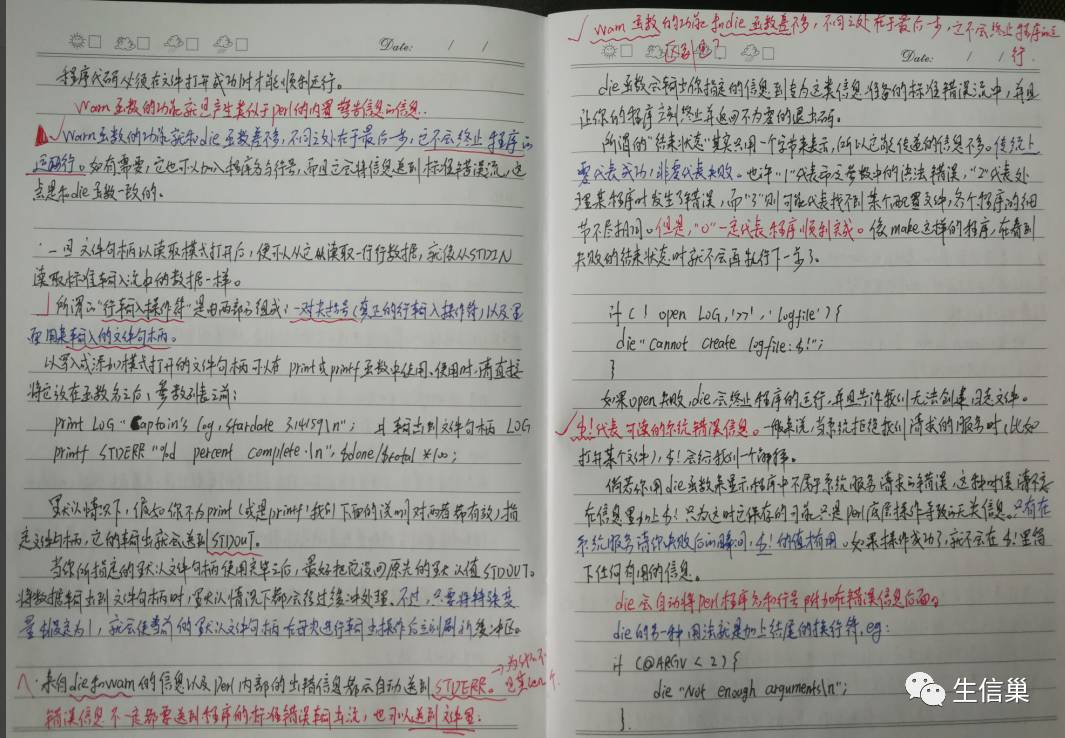 Date: / /
程序代码必须在文件打开成功时才能顺利运行。
warn函数的功能就是产生类似于perl的内置警告信息的信息..
warn函数的功能就和die函数差不多,不同之处在于最后一步,它不会终止程序的
运行。如有需要,它也可以加入程序名与行号,而且它会将信息送到标准错误流,这
点是和die函数一致的。
一旦文件句柄以读取模式打开后,便可以从它那读取一行行数据,就像从STDIN
读取标准输入流中的数据一样。
所谓的"行输入操作符"是由两部分组成:一对尖括号(真正的行输入操作符)以及里
面用来输入的文件句柄。
以写入或添加模式打开的文件句柄可以在print或printf函数中使用。使用时,请直接
将它放在函数名之后,参数列表之前:
print LOG "Captain's log, stardate 3.14159\n"; # 输出到文件句柄 LOG
printf STDERR "%d percent complete.\n", $done/$total * 100;
默认情况下,假如你不为print(或是printf,我们下面的说明对两者都有效)指
定文件句柄,它的输出就会送到STDOUT。
当你所指定的默认文件句柄使用完毕之后,最好把它设回原先的默认值STDOUT。
将数据输出到文件句柄时,默认情况下都会经过缓冲处理。不过,只要将特殊变
量$|设定为1,就会使当前的默认文件句柄在每次进行输出操作后立刻刷新缓冲区。
来自die和warn的信息以及perl内部的出错信息都会自动送到STDERR。
→为什么不
错误信息不一定都要送到程序的标准错误输出流,也可以送到文件里:
warn函数的功能和die函数差不多,不同之处在于最后一步,它不会终止程序的运
行
区别是?
Date: / /
die函数会输出你指定的信息到专为这类信息准备的标准错误流中,并且
让你的程序立刻终止并返回不为零的退出码。
所谓的"结束状态"其实只用一个字节来表示,所以它能传递的信息不多。传统上
零代表成功,非零代表失败。也许"1"代表命令参数中的语法错误,"2"代表处
理某程序时发生了错误,而"3"则可能代表找不到某个配置文件,各个程序的细
节不尽相同。但是,"0"一定代表程序顺利完成。像make这样的程序,在看到
失败的结束状态时就不会再执行下一步了。
if ( ! open LOG, '>>', 'logfile' ) {
die "Cannot create logfile: $!";
}
如果open失败,die会终止程序的运行,并且告诉我们无法创建日志文件。
$!代表可读的系统错误信息。一般来说,当系统拒绝我们请求的服务时(比如
打开某个文件),$!会给我们一个解释。
倘若你用die函数来显示程序中不属于系统服务请求的错误,这种时候请不要
在信息里加上$!只为这时它保存的可能只是perl底层操作导致的无关信息。只有在
系统服务请求失败后的瞬间,$!的值才有用。如果操作成功了,就不会在$!里留
下任何有用的信息。
die会自动将perl程序名和行号附加在错误信息后面。
die的另一种用法就是加上结尾的换行符,eg:
if (@ARGV < 2) {
die "Not enough arguments\n";
}
生信巢